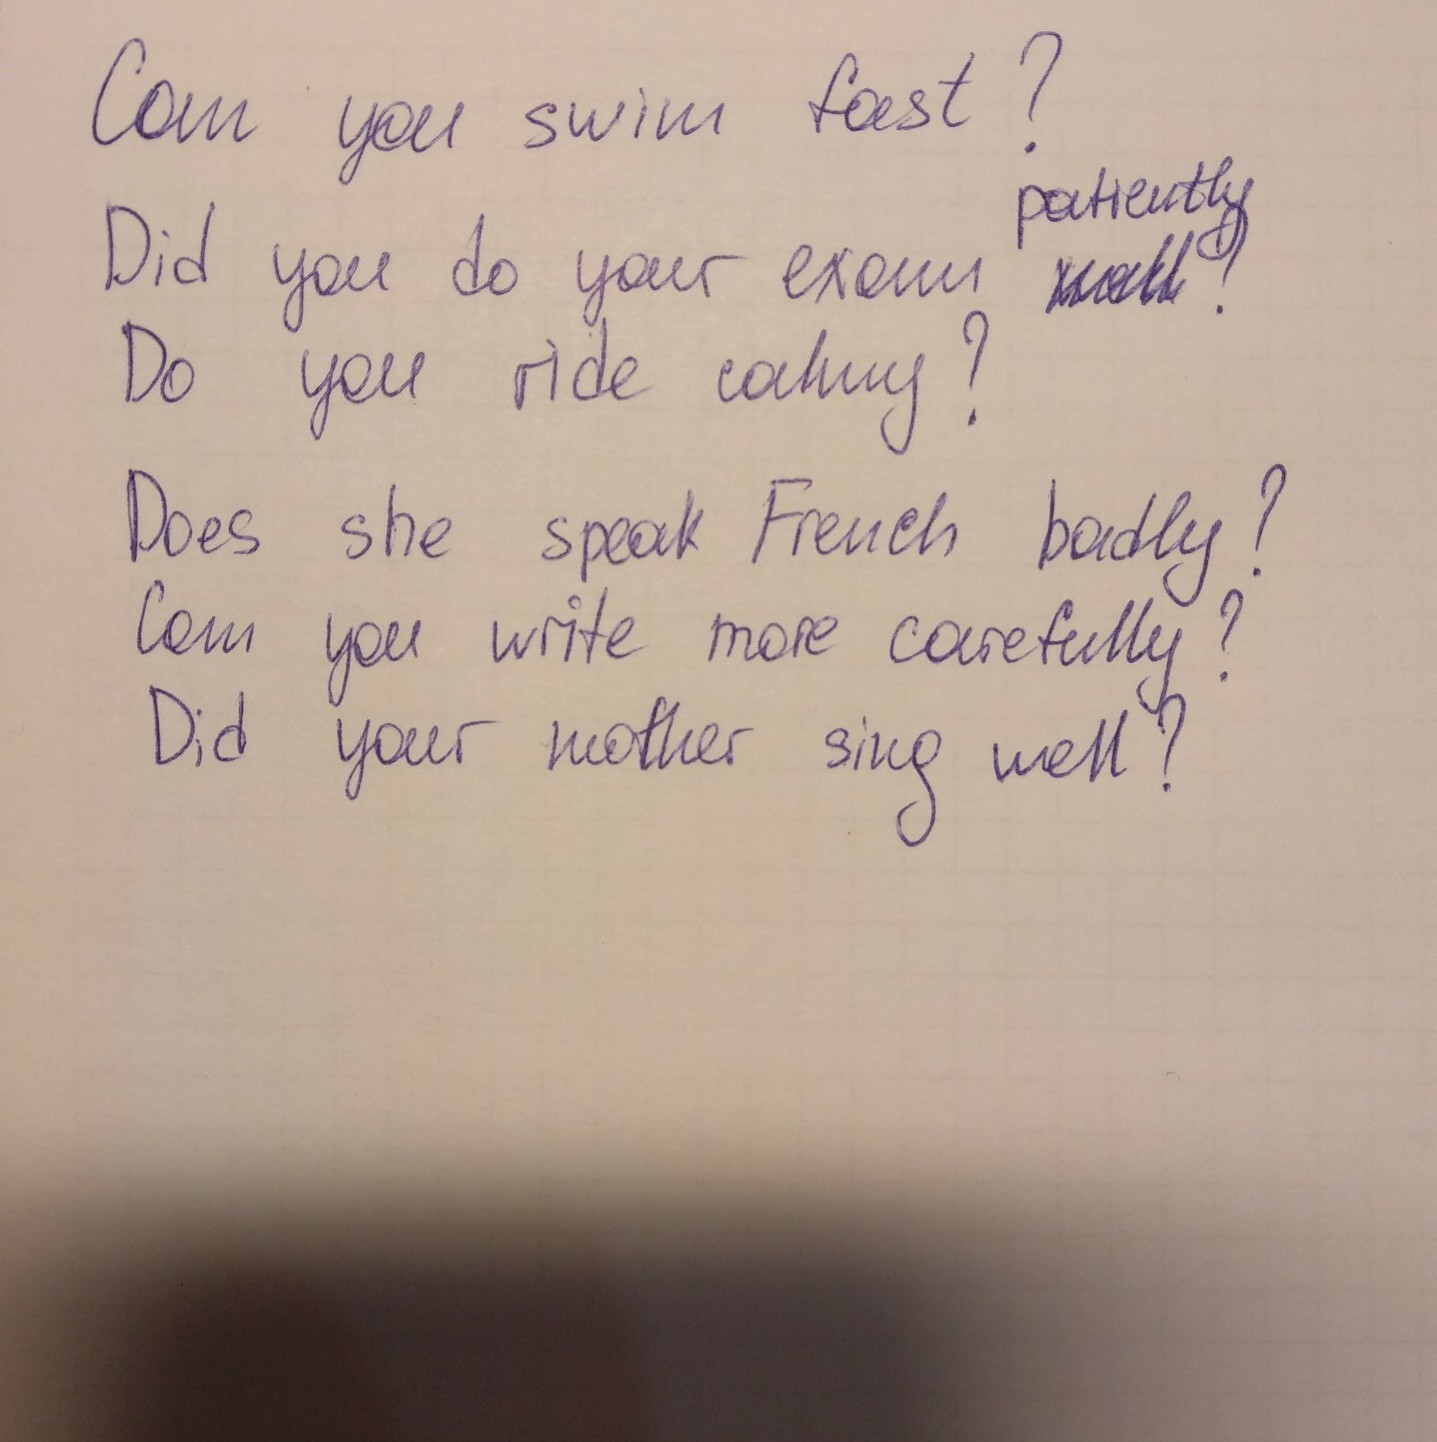 Can you swim fast?
Did you do your exam patiently?
Do you ride calmy?
Does she speak French badly?
Can you write more carefully?
Did your mother sing well?